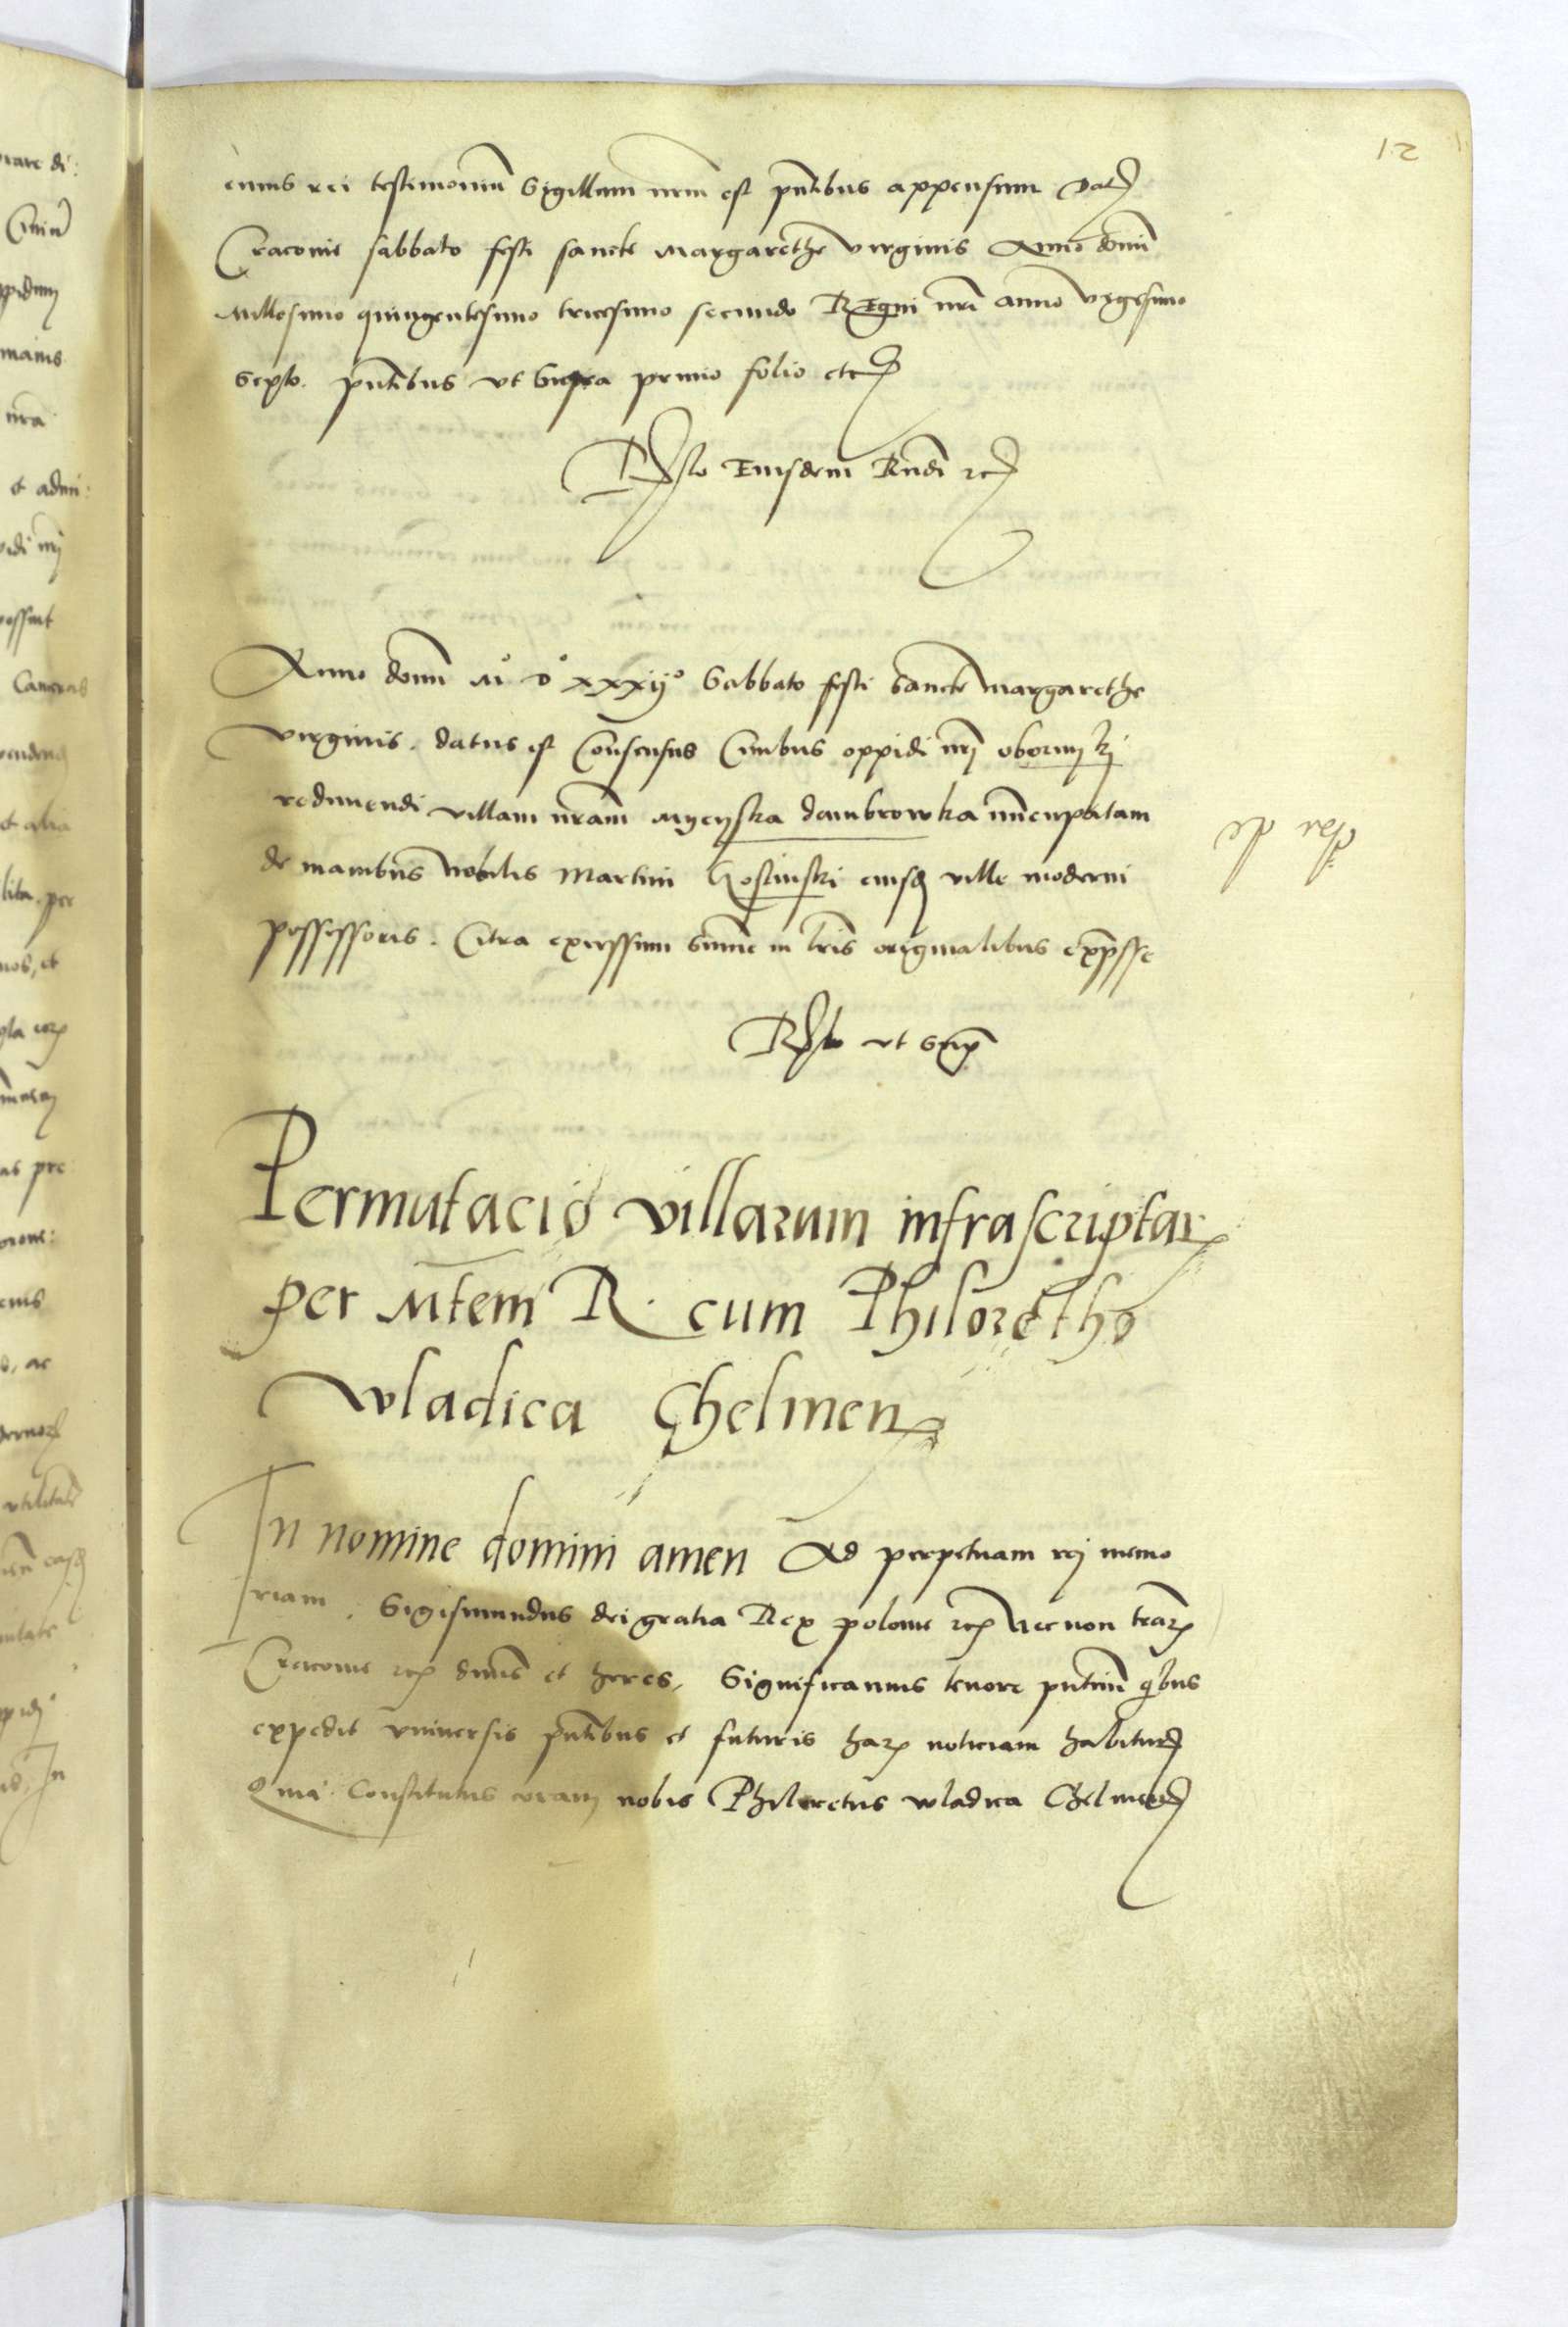 12
cuius rei testimoniũ Sigillum nrm̃ est pñtibus appensum Dat
Cracovie sabbato festi sancte Margarethe virginis Anno domĩ
Millesimo quingentesimo tricesimo secundo Regni nrĩ anno vigesimo
Sexto. pñtibus vt supra primo folio etc
Rlo Eiusdem Rndi etc
Anno domĩ Mº Dº xxxijº Sabbato festi Sancte Margarethe
virginis. datus est Consensus Civibus oppidi nrj obornyky
redimendi villam nram̃ Myeyska dambrowka nũncupatam
de manibus nobilis Martini Gostinski eiusd ville moderni
possessoris. Citra expressum summe in lris originalibus exp̃sse
Rlo vt supr
Permutacio villarum infrascriptar
per Mtem R. cum Philoretho
wladica Chelmen
In nomine domini amen Ad perpetuam rej memo
riam. Sigismundus dei gratia Rex polonie etc necnon terrar
Cracovie etc dnus et heres, Significamus tenore pñtiũ qbus
expedit vniversis pñtibus et futuris har noticiam habitur
Quia Constitutus coram nobis Philoretus wladica Chelmen